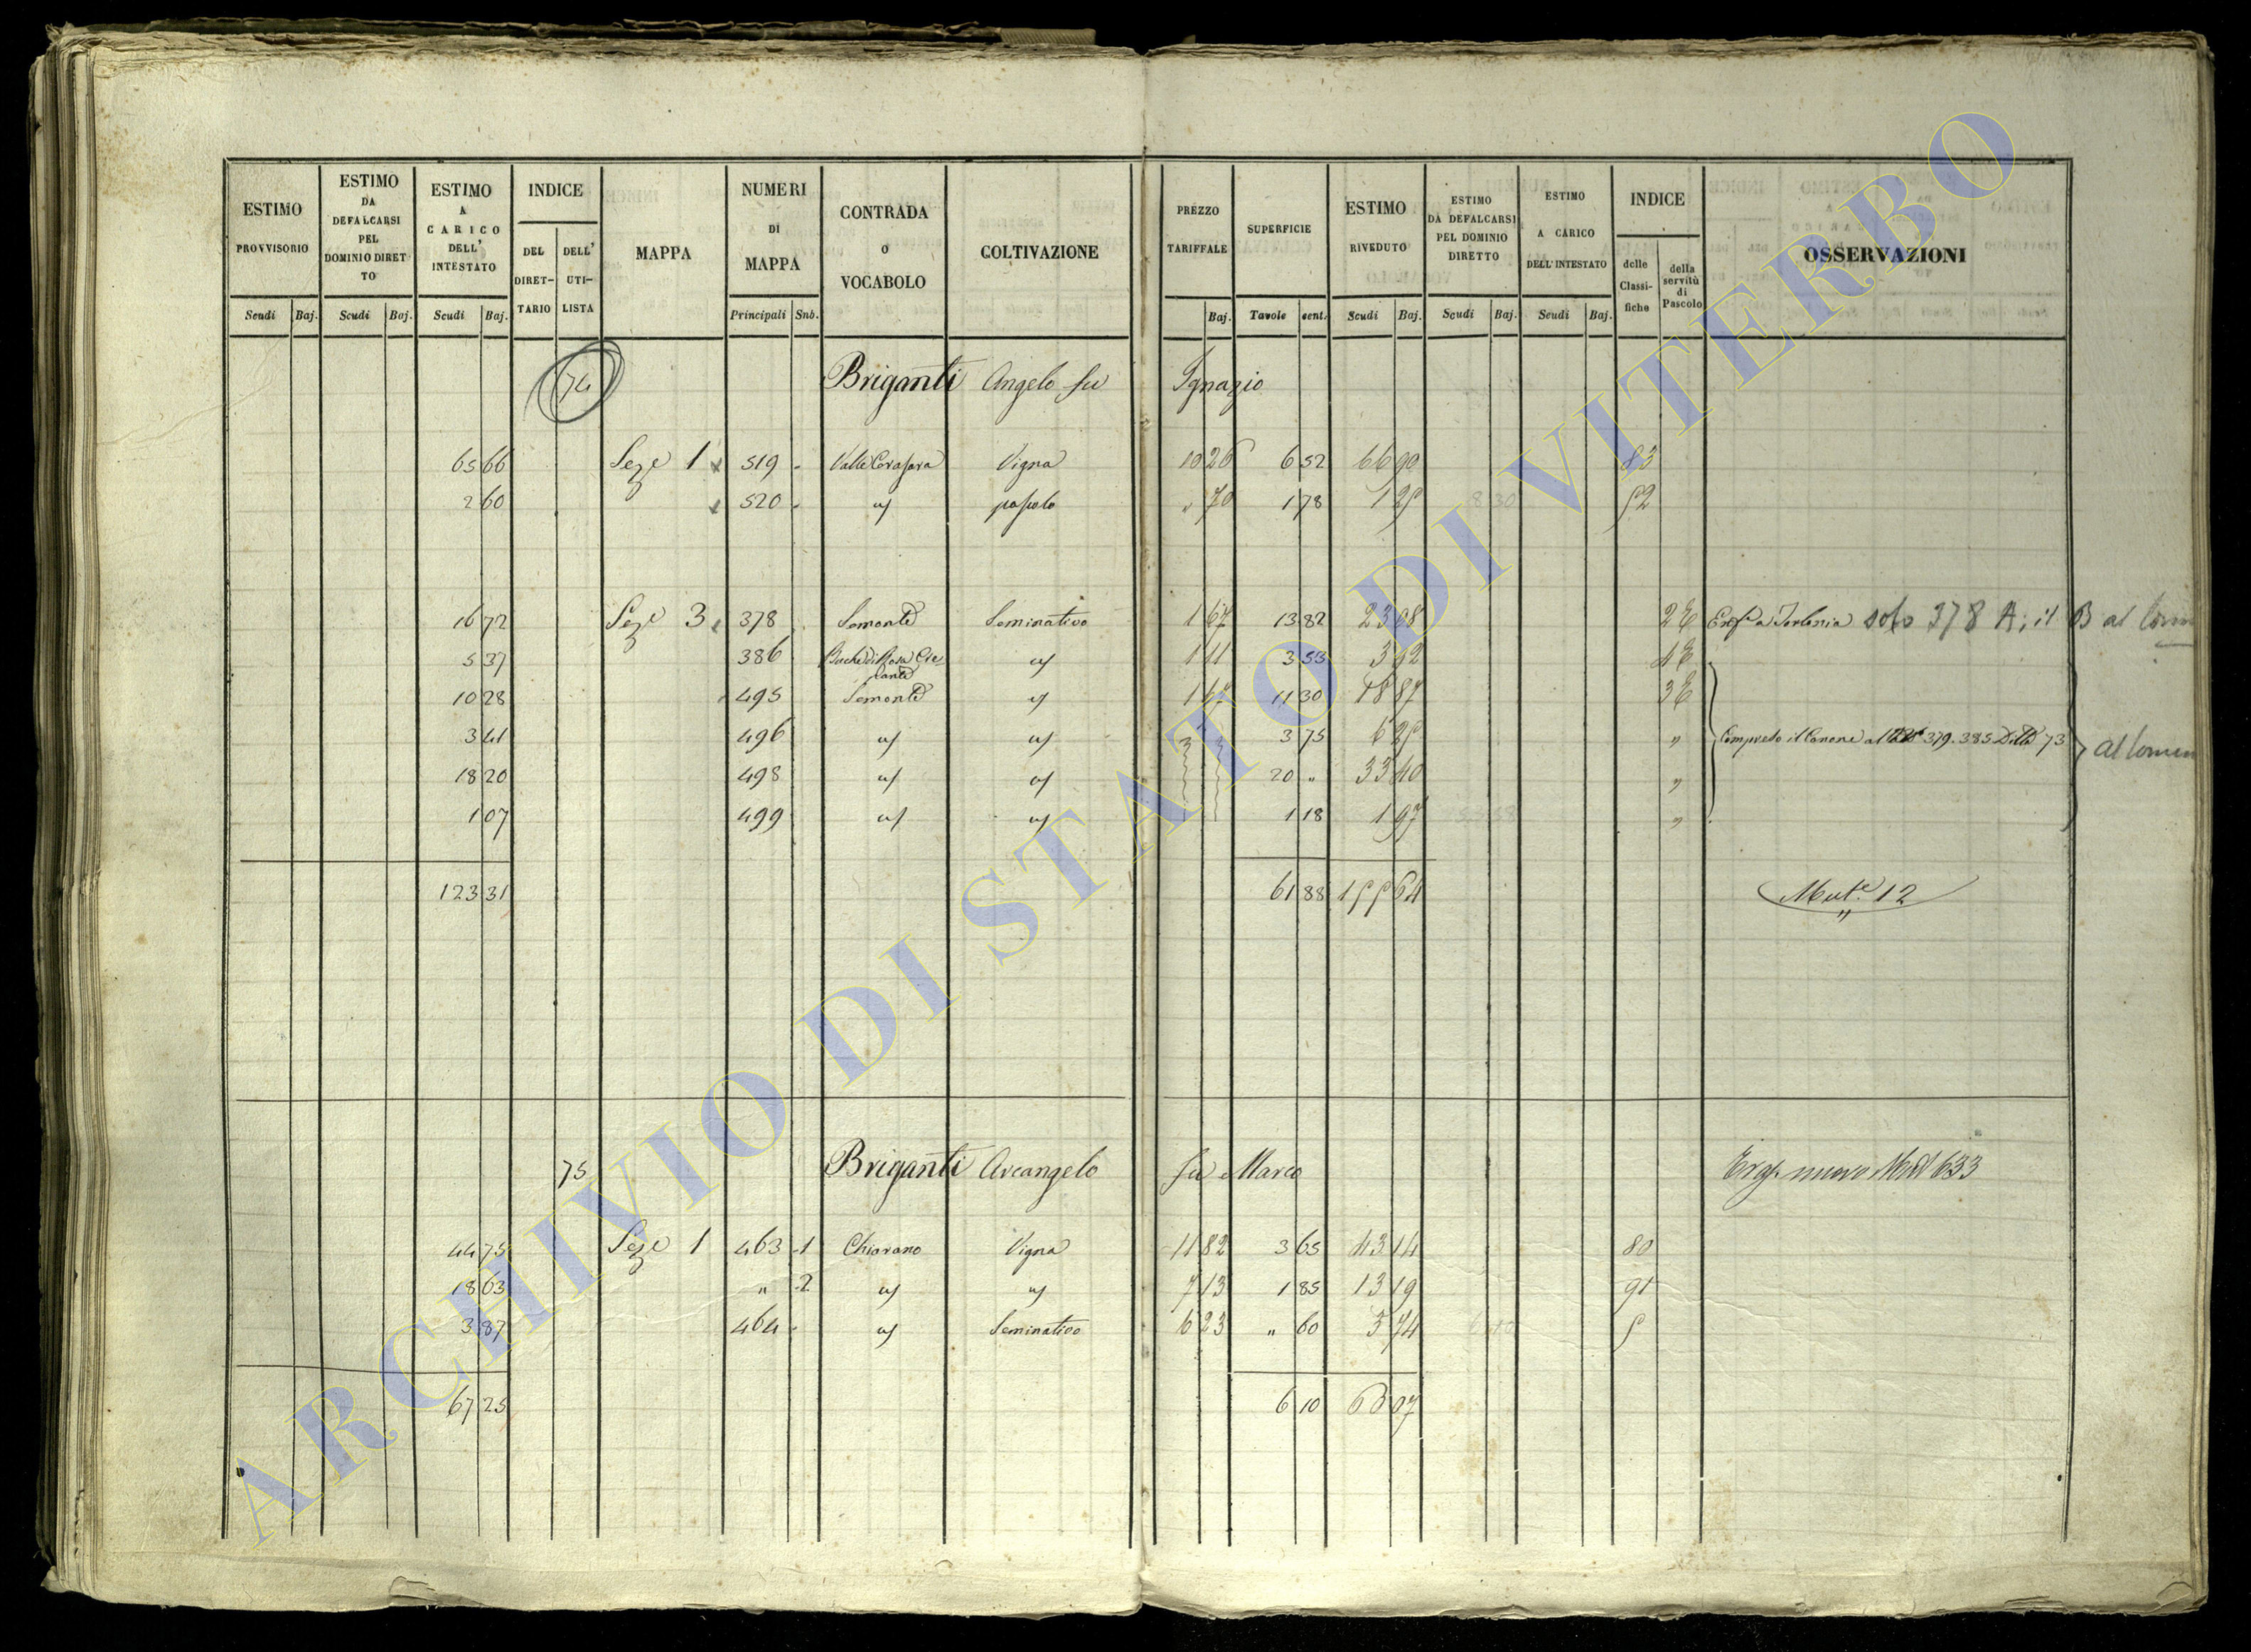 ESTIMO PROVVISORIO Scudi Baj.
ESTIMO DA DEFALCARSI PEL DOMINIO DIRETTO Scudi Baj.
ESTIMO A CARICO DELL' INTESTATO Scudi Baj.
INDICE DEL DIRET-TARIO DELL' UTI-LISTA
MAPPA
NUMERI DI MAPPA Principali Sub.
CONTRADA O VOCABOLO
COLTIVAZIONE
PREZZO TARIFFALE Baj.
SUPERFICIE Tavole cent.
ESTIMO RIVEDUTO Scudi Baj.
ESTIMO DA DEFALCARSI PEL DOMINIO DIRETTO Scudi Baj.
ESTIMO A CARICO DELL'INTESTATO Scudi Baj.
INDICE delle Classi-fiche della servitù di Pascolo
OSSERVAZIONI
74 Briganti Angelo fu Ignazio
65 66 Seze 1 519 Vigna 10 26 6 52 66 90 83
2 60 520 " pascolo " 70 1 78 1 25 52
16 72 Seze 3 378 Semonte Seminativo 1 67 13 82 23 08 2 E solo 378 A; il B al
5 37 386 " 1 11 3 53 3 92 4 E
10 28 495 Semonte " 1 67 11 30 18 87 3 E
3 41 496 " " 3 75 6 25 " Compreso il Canone al 379. 385 Ditta 73
18 20 498 " " 20 " 33 40 "
1 07 499 " " 1 18 1 97 "
123 31 61 88 155 64 Mut.e 12
75 Briganti Arcangelo fu Marco nuovo 633
44 75 Seze 1 463 1 Chiorano Vigna 11 82 3 65 43 14 80
18 63 " 2 " " 7 13 1 85 13 19 91
3 87 464 " Seminativo 6 23 " 60 3 74 5
67 25 6 10 60 07
ARCHIVIO DI STATO DI VITERBO